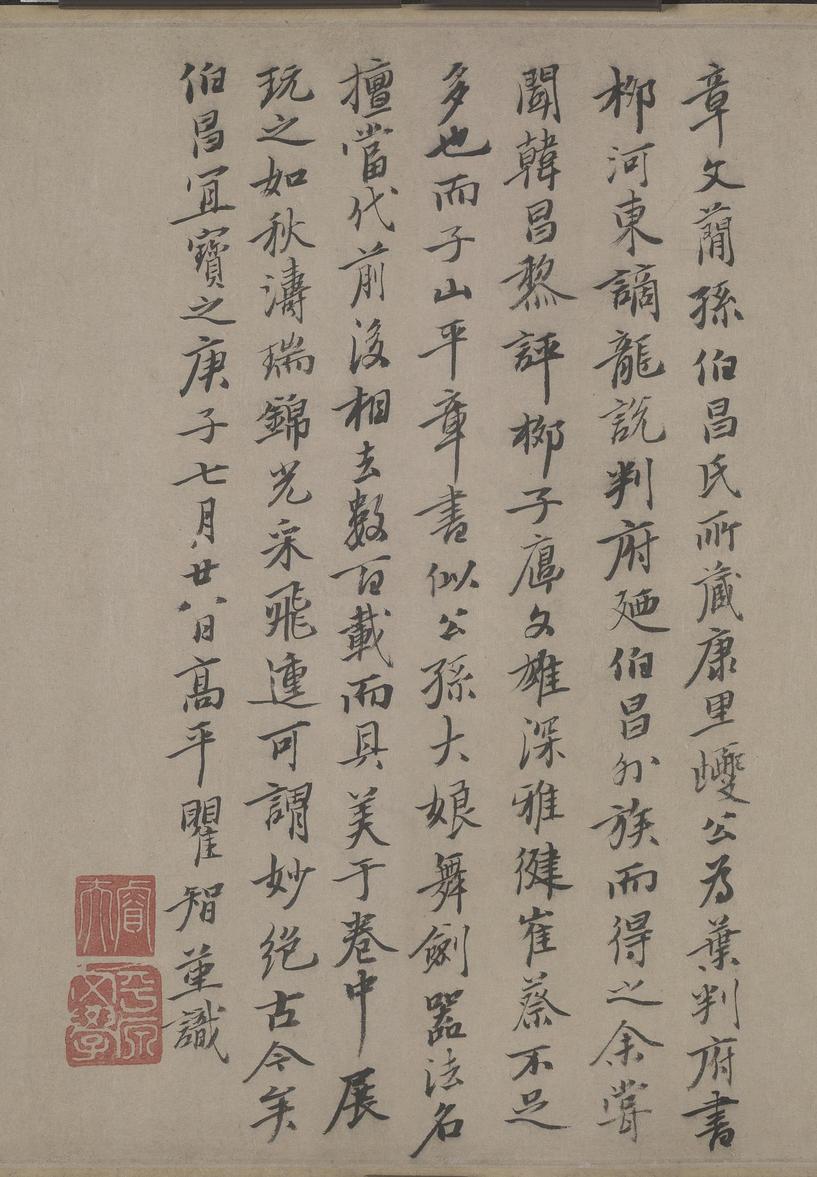 章文蕳孫伯昌氏所蔵康里巙公為葉判府書
柳河東謫龍說判府廼伯昌外族而得之余嘗
聞韓昌黎評柳子厚文雄深雅健崔蔡不足
多也而子山平章書似公孫大娘舞劍器法名
擅當代前後相去數百載而具美于卷中展
玩之如秋濤瑞錦光采飛連可謂妙絕古今矣
伯昌宜寶之庚子七月廿八日高平瞿智草識
睿夫
文學